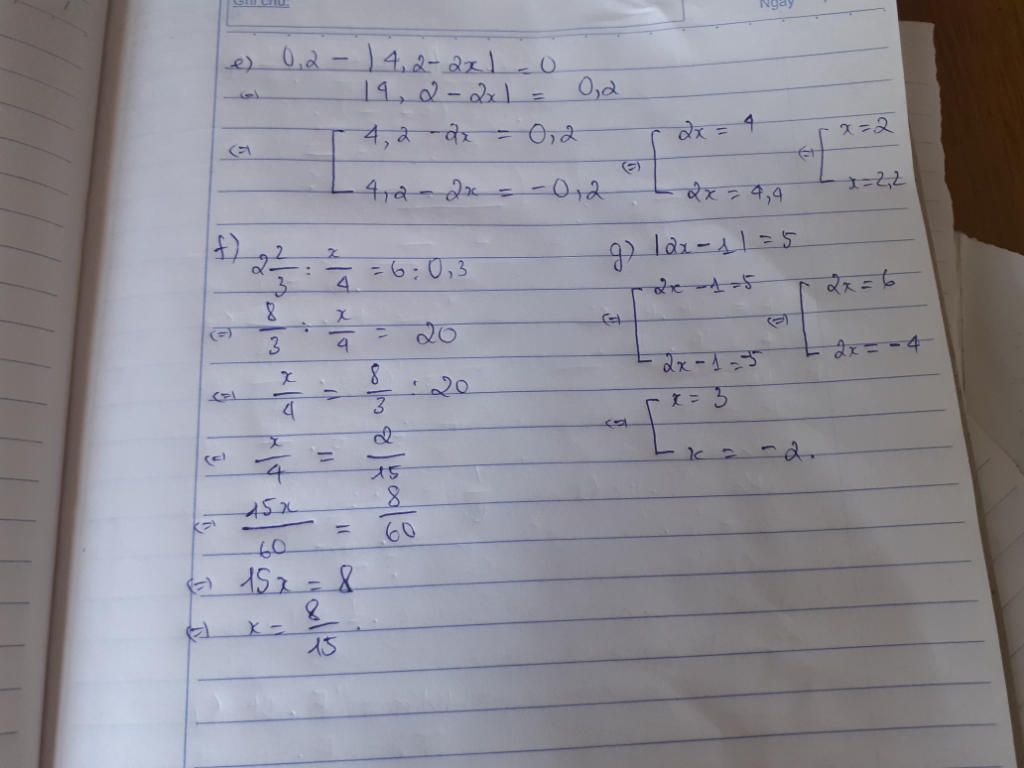 Ghi chú:
Ngày
e) 0,2 - |4,2 - 2x| = 0
(=) |4, 2 - 2x| = 0,2
(=) [ 4,2 - 2x = 0,2 (=) [ 2x = 4 (=) [ x = 2
4,2 - 2x = -0,2 2x = 4,4 x = 2,2
f) 2 2/3 : x/4 = 6 : 0,3
(=) 8/3 : x/4 = 20
(=) x/4 = 8/3 : 20
(=) x/4 = 2/15
(=) 15x/60 = 8/60
(=) 15x = 8
(=) x = 8/15.
g) |2x - 1| = 5
(=) [ 2x - 1 = 5 (=) [ 2x = 6
2x - 1 = -5 2x = -4
(=) [ x = 3
x = -2.